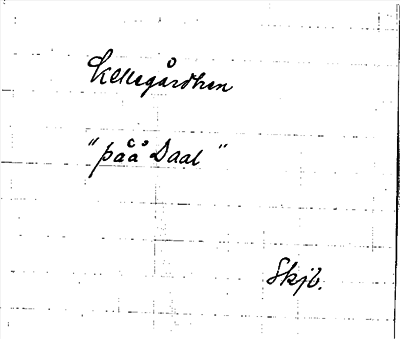 Kellegårdhen
"påå Daal"
Skjb.